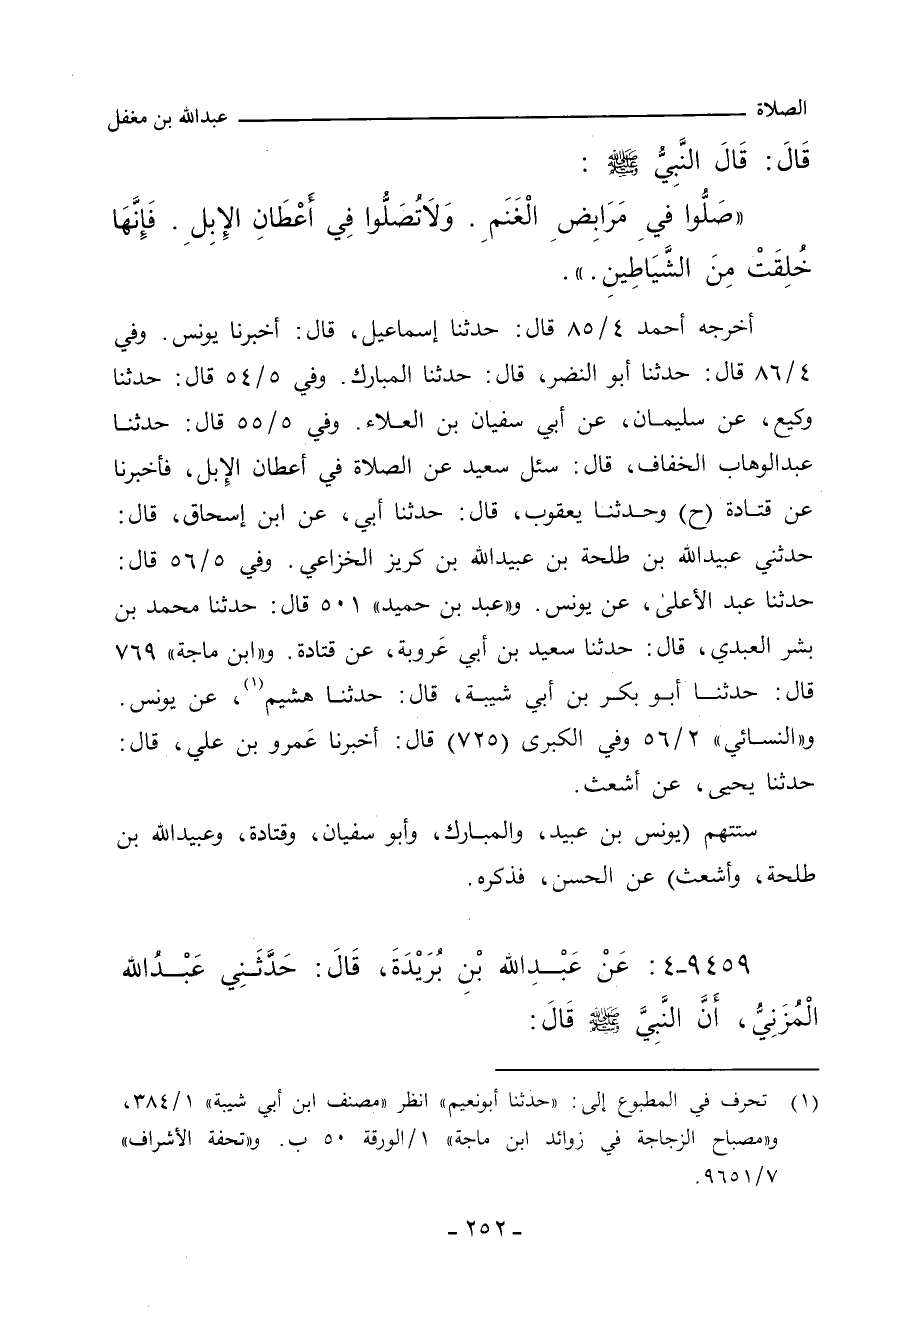 الصلاة ــــــــــــــ عبدالله بن مغفل
قَالَ: قَالَ النَّبِيُّ ﷺ :
«صَلُّوا فِي مَرَابِضِ الْغَنَمِ . وَلَاتُصَلُّوا فِي أَعْطَانِ الإِبِلِ . فَإِنَّهَا
خُلِقَتْ مِنَ الشَّيَاطِينِ.».
أخرجه أحمد ٨٥/٤ قال: حدثنا إسماعيل، قال: أخبرنا يونس. وفي
٨٦/٤ قال: حدثنا أبو النضر، قال: حدثنا المبارك. وفي ٥٤/٥ قال: حدثنا
وكيع، عن سليمان، عن أبي سفيان بن العلاء. وفي ٥٥/٥ قال: حدثنا
عبدالوهاب الخفاف، قال: سئل سعيد عن الصلاة في أعطان الإبل، فأخبرنا
عن قتادة (ح) وحدثنا يعقوب، قال: حدثنا أبي، عن ابن إسحاق، قال:
حدثني عبيدالله بن طلحة بن عبيدالله بن كريز الخزاعي. وفي ٥٦/٥ قال:
حدثنا عبد الأعلىٰ، عن يونس. و«عبد بن حميد» ٥٠١ قال: حدثنا محمد بن
بشر العبدي، قال: حدثنا سعيد بن أبي عَروبة، عن قتادة. و«ابن ماجة» ٧٦٩
قال: حدثنا أبو بكر بن أبي شيبة، قال: حدثنا هشيم(١)، عن يونس.
و«النسائي» ٥٦/٢ وفي الكبرى (٧٢٥) قال: أخبرنا عَمرو بن علي، قال:
حدثنا يحيى، عن أشعث.
ستتهم (يونس بن عبيد، والمبارك، وأبو سفيان، وقتادة، وعبيدالله بن
طلحة، وأشعث) عن الحسن، فذكره.
٩٤٥٩-٤: عَنْ عَبْدِالله بْنِ بُرَيْدَةَ، قَالَ: حَدَّثَنِي عَبْدُالله
الْمُزَنِيُّ، أَنَّ النَّبِيَّ ﷺ قَالَ:
(١) تحرف في المطبوع إلى: «حدثنا أبونعيم» انظر «مصنف ابن أبي شيبة» ٣٨٤/١،
و«مصباح الزجاجة في زوائد ابن ماجة» ١/الورقة ٥٠ ب. و«تحفة الأشراف»
٩٦٥١/٧.
- ٢٥٢ -